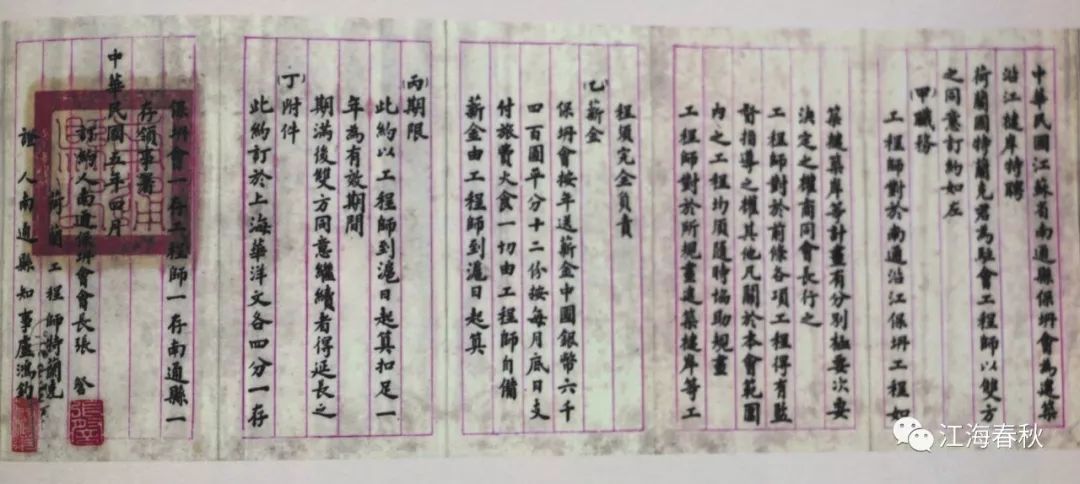 中華民國江蘇省南通縣保坍會為建築
沿江楗岸特聘
荷蘭國特蘭克君為駐會工程師以雙方
之同意訂約如左
(甲)職務
工程師對於南通沿江保坍工程如
築楗築岸等計畫有分別極要次要
決定之權商同會長行之
工程師對於前條各項工程得有監
督指導之權其他凡關於本會範圍
內之工程均須隨時協助規畫
工程師對於所規畫建築楗岸等工
程須完全負責
(乙)薪金
保坍會按年送薪金中國銀幣六千
四百圓平分十二份按每月底日交
付旅費火食一切由工程師自備
薪金由工程師到滬日起算
(丙)期限
此約以工程師到滬日起算扣足一
年為有效期間
期滿後雙方同意繼續者得延長之
(丁)附件
此約訂於上海華洋文各四分一存
保坍會一存工程師一存南通縣一
存領事署
中華民國五年四月
訂約人南通保坍會會長張詧
荷蘭工程師特蘭克
證人南通縣知事盧鴻鈞
江海春秋